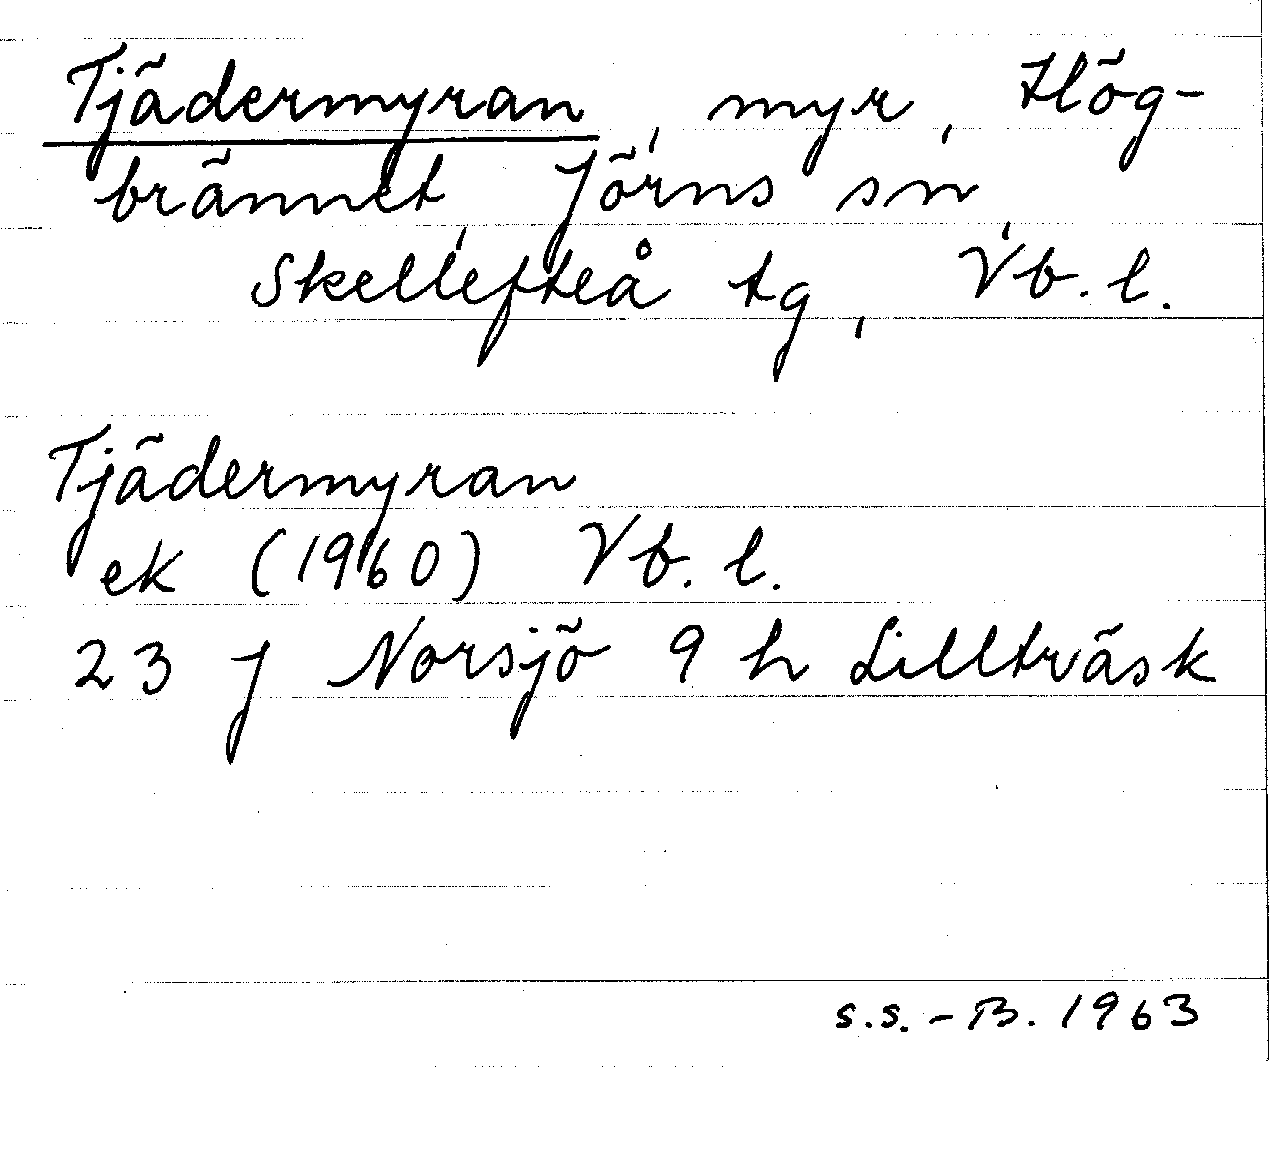 Tjädermyran, myr, Hög-
brännet, Jörns sn,
Skellefteå tg, Vb. l.
Tjädermyran
ek (1960) Vb. l.
23 J Norsjö 9 h Lillträsk
s.s.-B. 1963